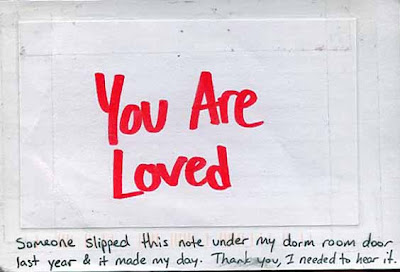 You Are
Loved
Someone slipped this note under my dorm room door
last year & it made my day. Thank you, I needed to hear it.